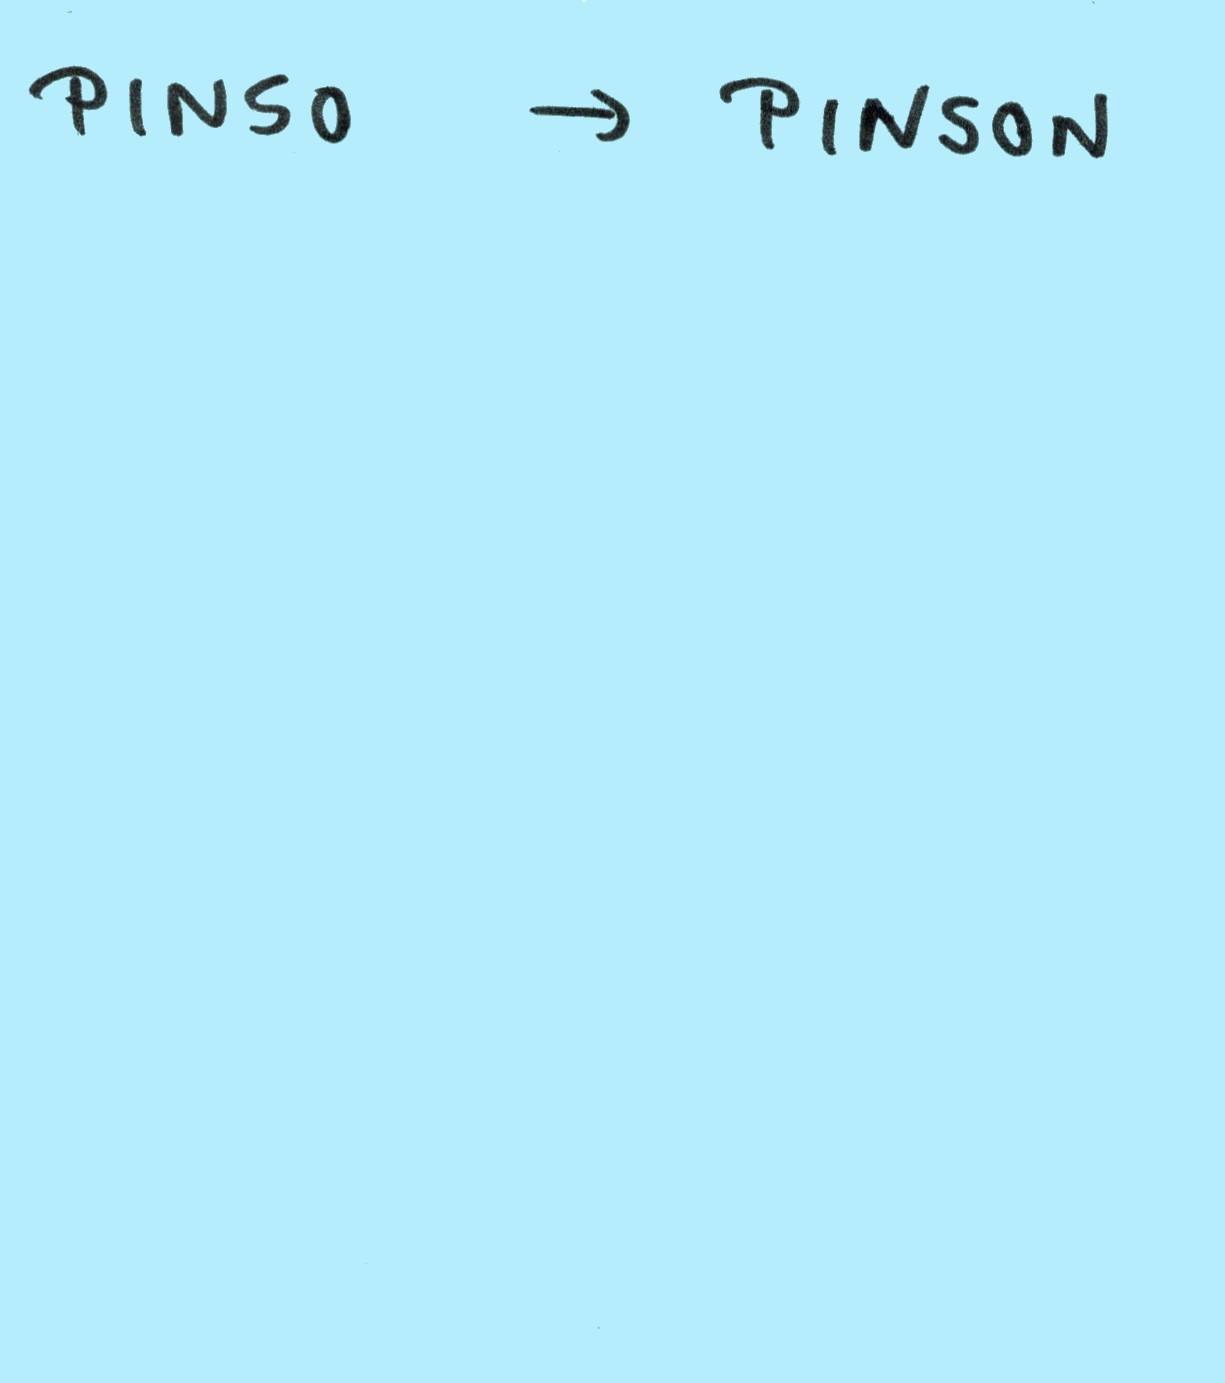 PINSO → PINSON